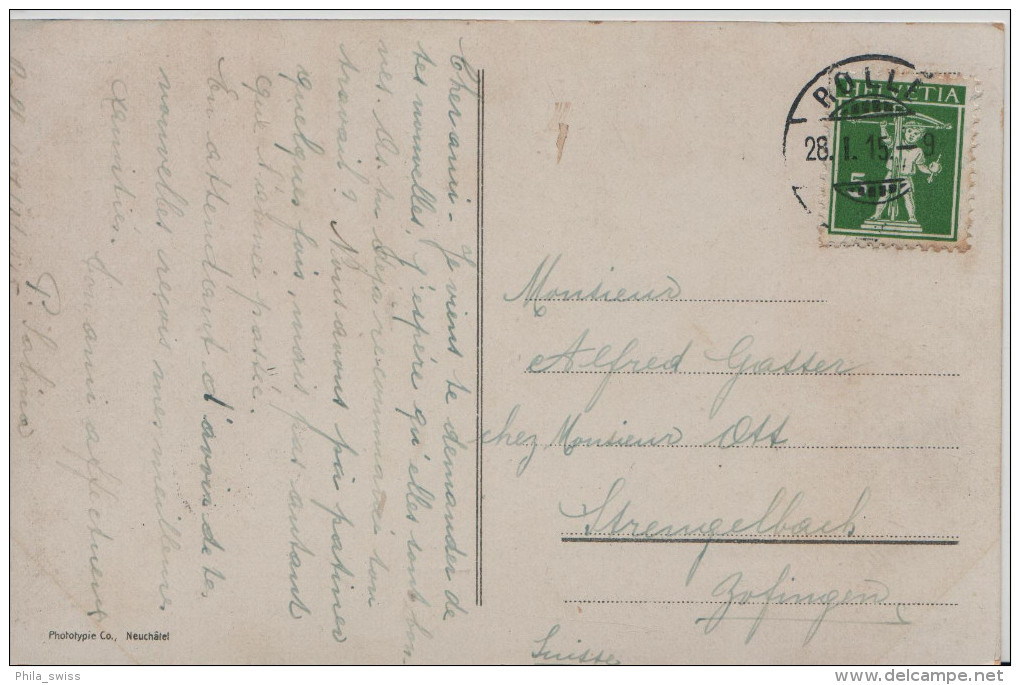 Cher ami - Je viens te demander de
tes nouvelles, j'espère qu'elles sont bon-
nes. As-tu déjà recommancé ton
travail? Nous avons pu patiner
quelques fois, mais pas autant
que l'année passée.
En attendant d'avoir de tes
nouvelles reçois mes meilleures
amitiés.
Ton ami affectueux
P.
Rolle
HELVETIA
ROLLE
28. I. 15. - 9
5
Monsieur
Alfred Gasser
chez Monsieur Ott
Strengelbach
Zofingen
Suisse
Phototypie Co., Neuchâtel
Phila_swiss
delcampe.net